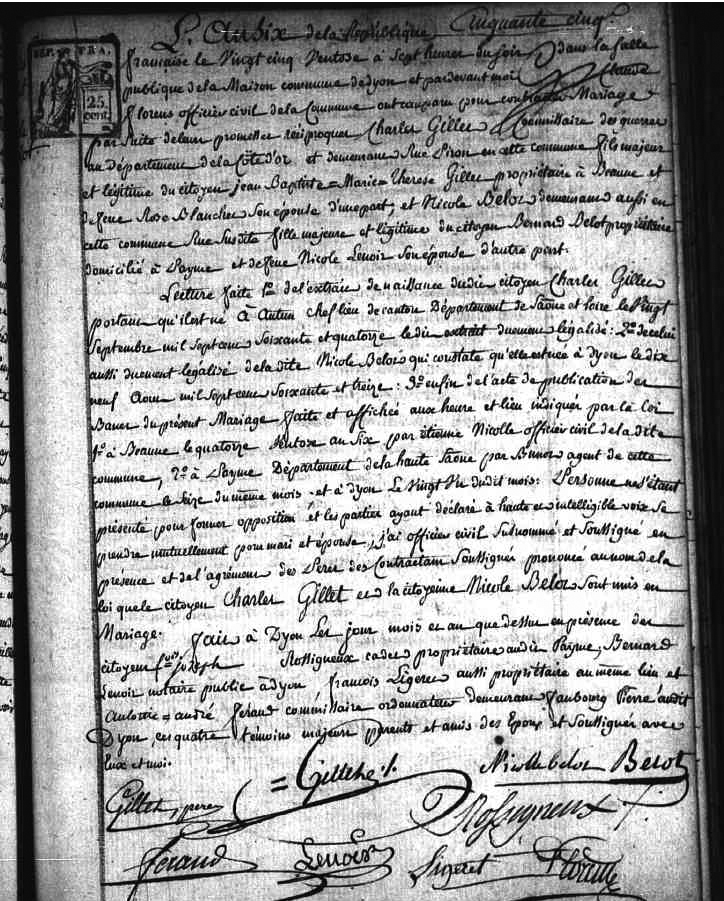 L'An Six de la République Cinquante cinq.
REP. FRA.
25
cent.
française le Vingt cinq Ventose à Sept heures du soir dans la salle
publique de la Maison commune de Dyon et pardevant moi Claude
Florens officier civil de la Commune ont comparu pour contracter Mariage
par suite de leurs promesses réciproques Charles Gillet Commissaire des guerres
au Département de la Côte d'or et demeurant Rue Piron en cette commune fils majeur
et légitime du citoyen Jean Baptiste = Marie = Therese Gillet propriétaire à Beaune et
defeue Rose Blanche son épouse d'une part, et Nicole Belot demeurant aussi en
cette commune Rue Susdite fille majeure et légitime du citoyen Bernard Belot propriétaire
domicilié à Payme et defeue Nicole Lenoir son épouse d'autre part.
Lecture faite 1º de l'extrait de naissance dudit citoyen Charles Gillet
portant qu'il est né à Autun chef lieu de canton Département de Saône et Loire le Vingt
Septembre mil Sept cent Soixante et quatorze le dit extrait duement légalisé: 2º de celui
aussi duement légalisé de la dite Nicole Belot qui constate qu'elle est née à Dyon le dix
neuf Aout mil Sept cent Soixante et treize: 3º enfin de l'acte de publication des
Bancs du présent Mariage faite et affichée aux heure et lieu indiqués par la Loi
1º à Beaune le quatorze Ventose an Six par étienne Nicolle officier civil de la dite
commune, 2º à Payme Département de la haute Saône par agent de cette
commune le Seize du même mois et à Dyon Le Vingt Un dudit mois: Personne ne s'étant
présenté pour former opposition et les parties ayant déclaré à haute et intelligible voix se
prendre mutuellement pour mari et épouse, j'ai officier civil Susnommé et Soussigné en
présence et de l'agrément des Peres des Contractans Soussignés prononcé au nom de la
loi que le citoyen Charles Gillet et la citoyenne Nicole Belot sont unis en
Mariage.
Fait à Dyon Les jour mois et an que dessus en présence des
citoyens fçois joseph Rossigneux cadet propriétaire audit Payme, Bernard
Lenoir notaire public à Dyon, françois Ligeret aussi propriétaire au même lieu et
Antoine = andré feraud commissaire ordonnateur demeurant Faubourg Pierre audit
Dyon, ces quatre témoins majeurs parents et amis des Epoux et Soussignés avec
Eux et moi.
Gillet, pere = Gillet Nicolle belot Belot
Rossigneux
feraud Lenoir Ligeret Florens